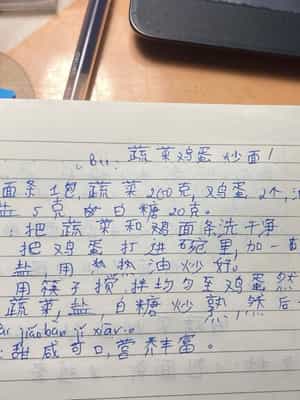 蔬菜鸡蛋炒面!
面条1包,蔬菜200克,鸡蛋2个,油
盐5克 白糖20克。
:把蔬菜和鸡面条洗干净
把鸡蛋打进碗里,加一
盐,用热油炒好。
用筷子搅拌均匀至鸡蛋然
蔬菜,盐,白糖炒熟,然后
jiǎobàn yī xiàr。
:甜咸可口,营养丰富。